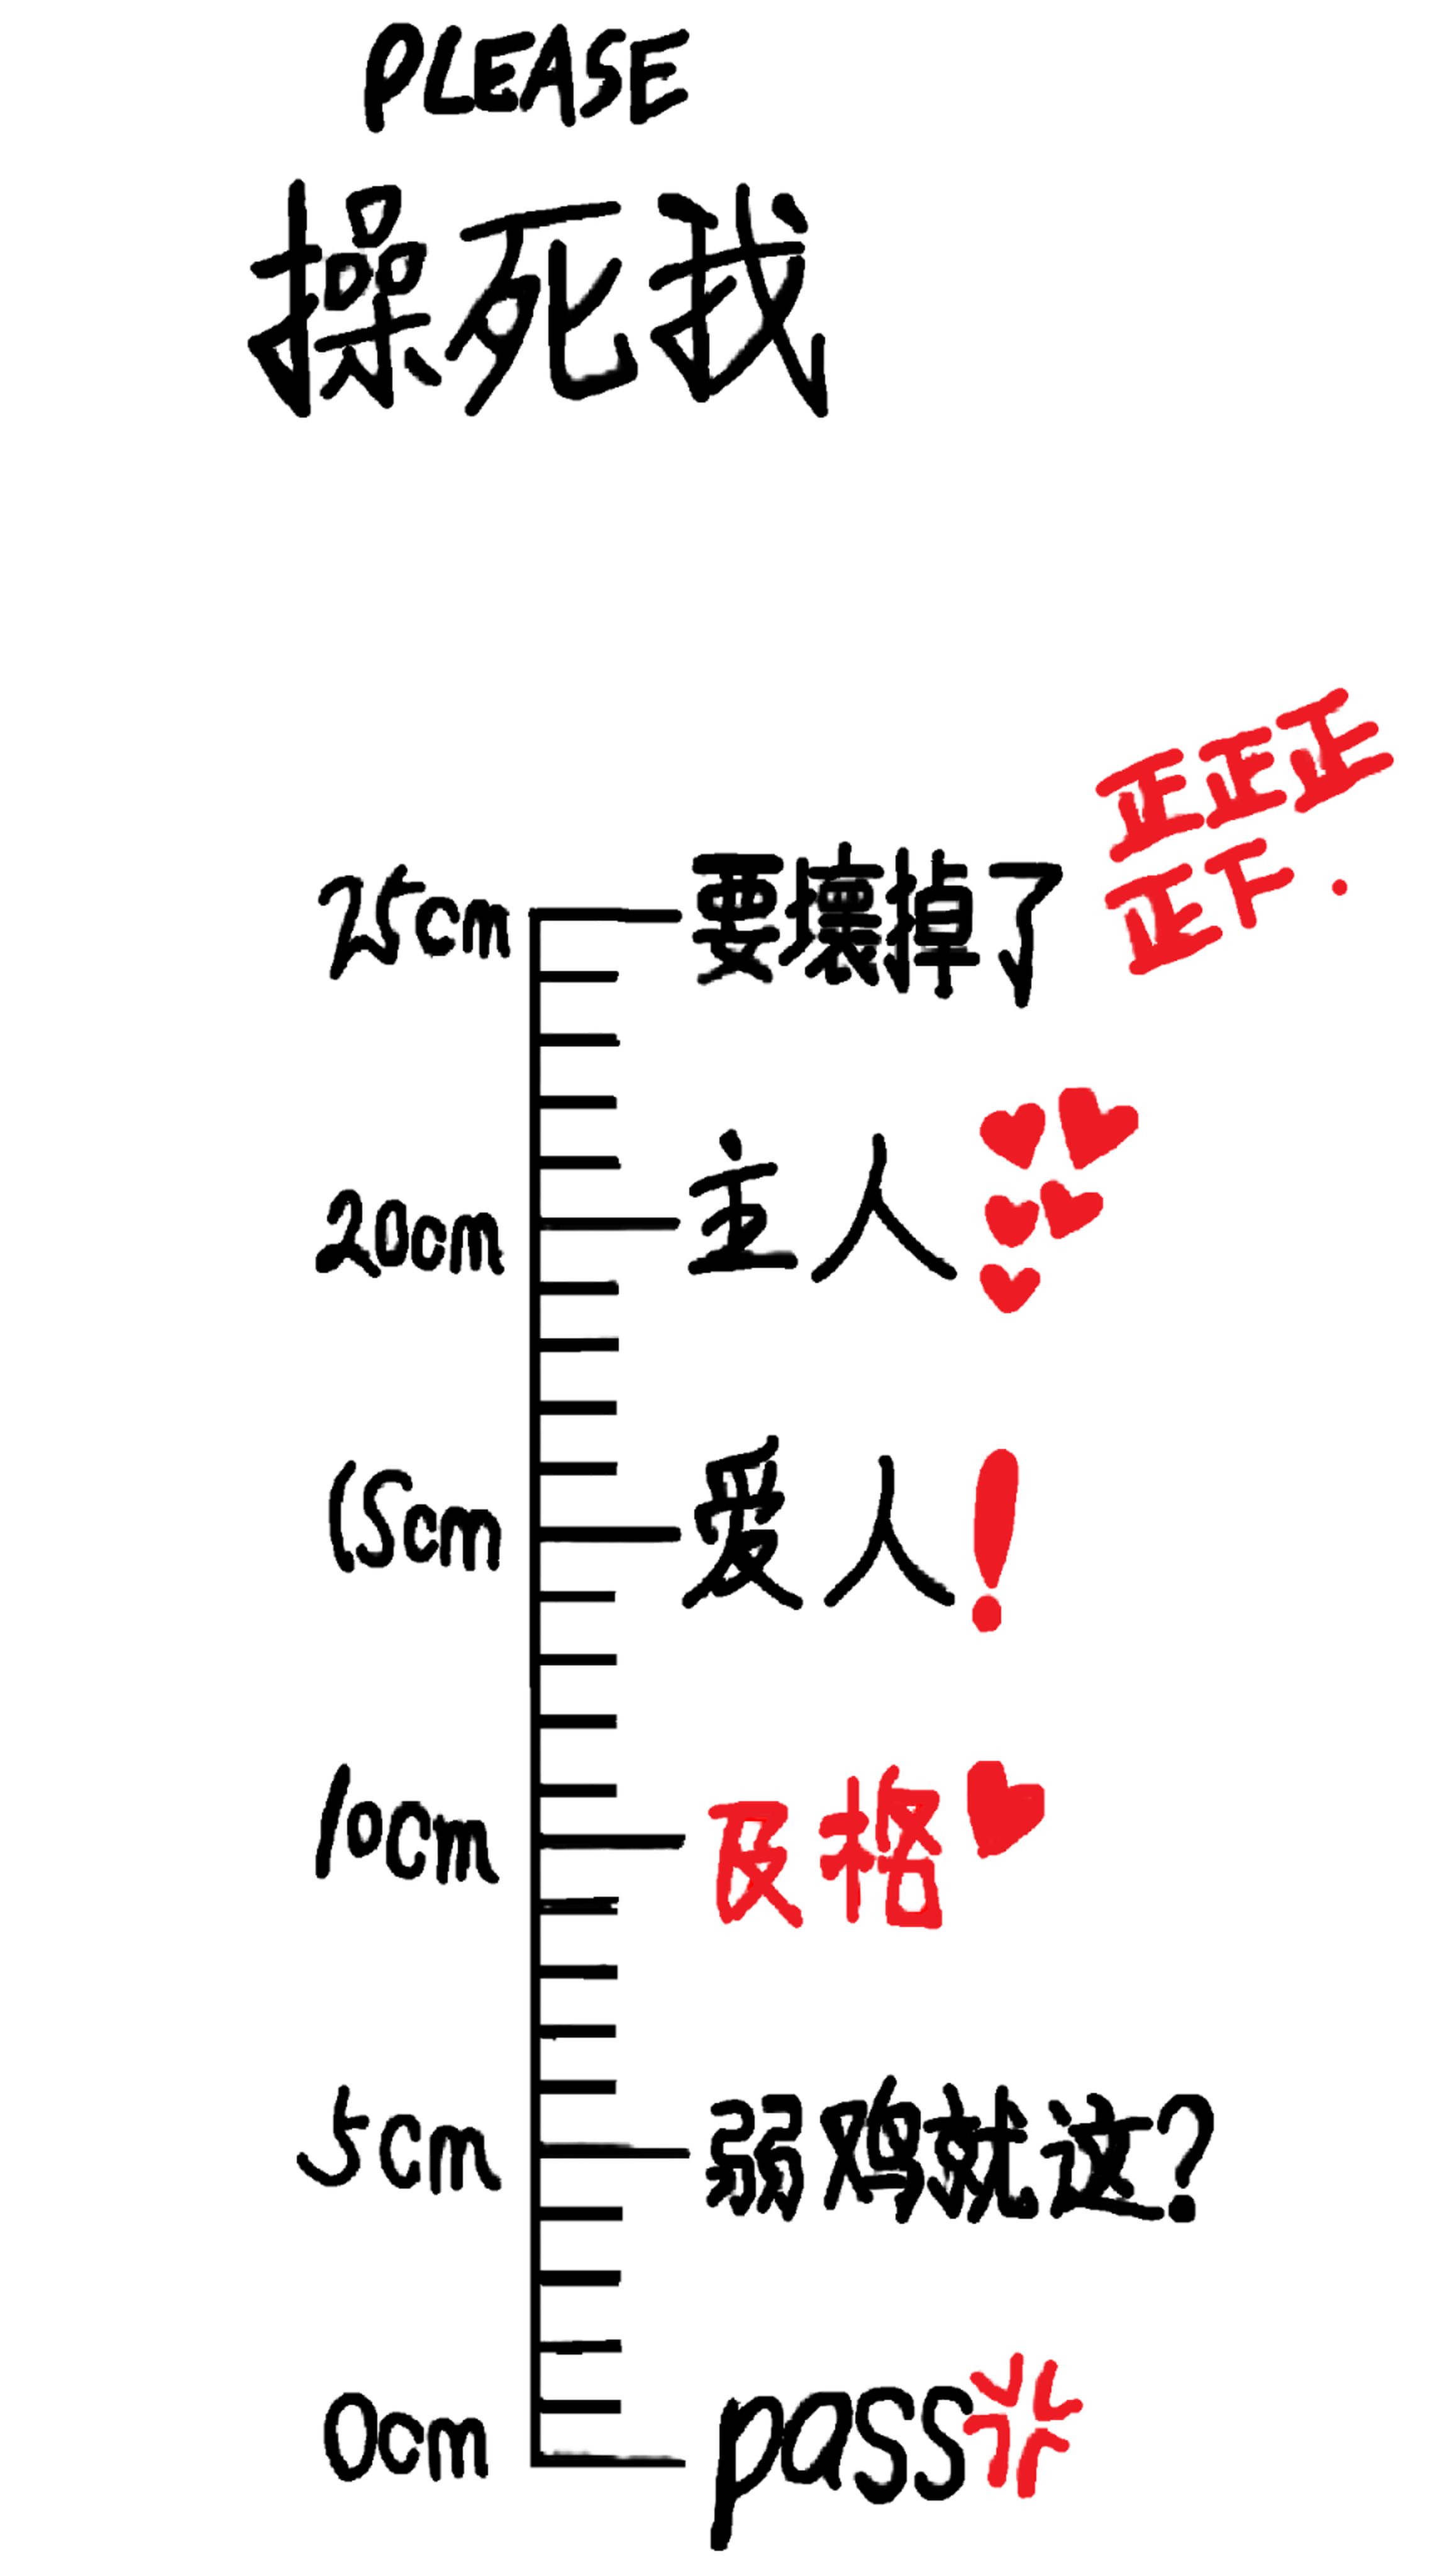 PLEASE
操死我
正正正
正下.
25cm 要壞掉了
20cm 主人
15cm 爱人!
10cm 及格
5cm 弱鸡就这?
0cm pass